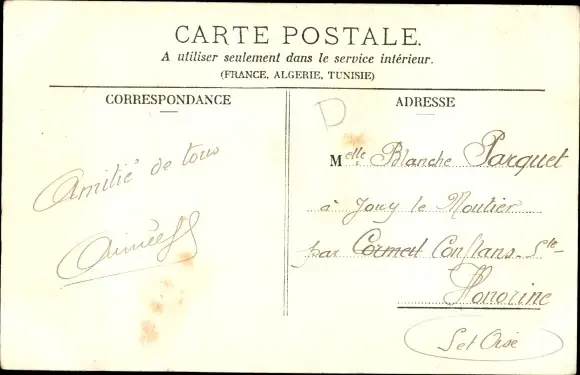 CARTE POSTALE.
A utiliser seulement dans le service intérieur.
(FRANCE, ALGERIE, TUNISIE)
CORRESPONDANCE
ADRESSE
D
Amitié de tous
Aimée
Melle Blanche Parquet
à Jouy le Moutier
par Conflans-Ste-
Honorine
S et Oise